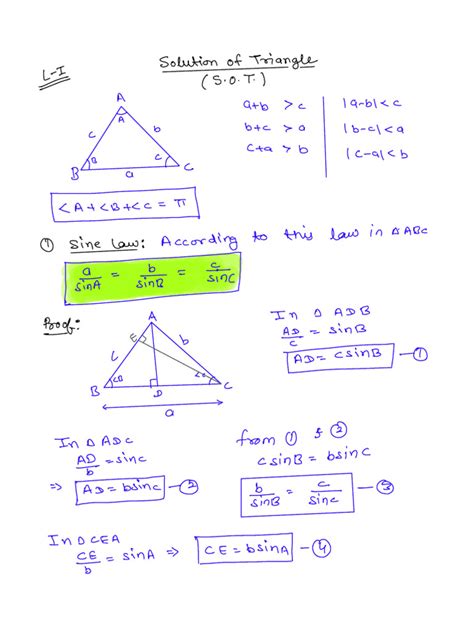 L-I
Solution of Triangle
(S.O.T.)
A
A
c
b
B
B
C
C
a
a+b > c
b+c > a
c+a > b
|a-b| < c
|b-c| < a
|c-a| < b
<A+<B+<C = π
① Sine Law: According to this law in △ABC
a/sinA = b/sinB = c/sinC
Proof:
A
E
b
B
<B
D
<C
C
a
In △ ADB
AD/c = sinB
AD = c sinB —①
In △ ADC
AD/b = sinC
⇒ AD = b sinC —②
from ① & ②
c sinB = b sinC
b/sinB = c/sinC —③
In △ CEA
CE/b = sinA ⇒ CE = b sinA —④